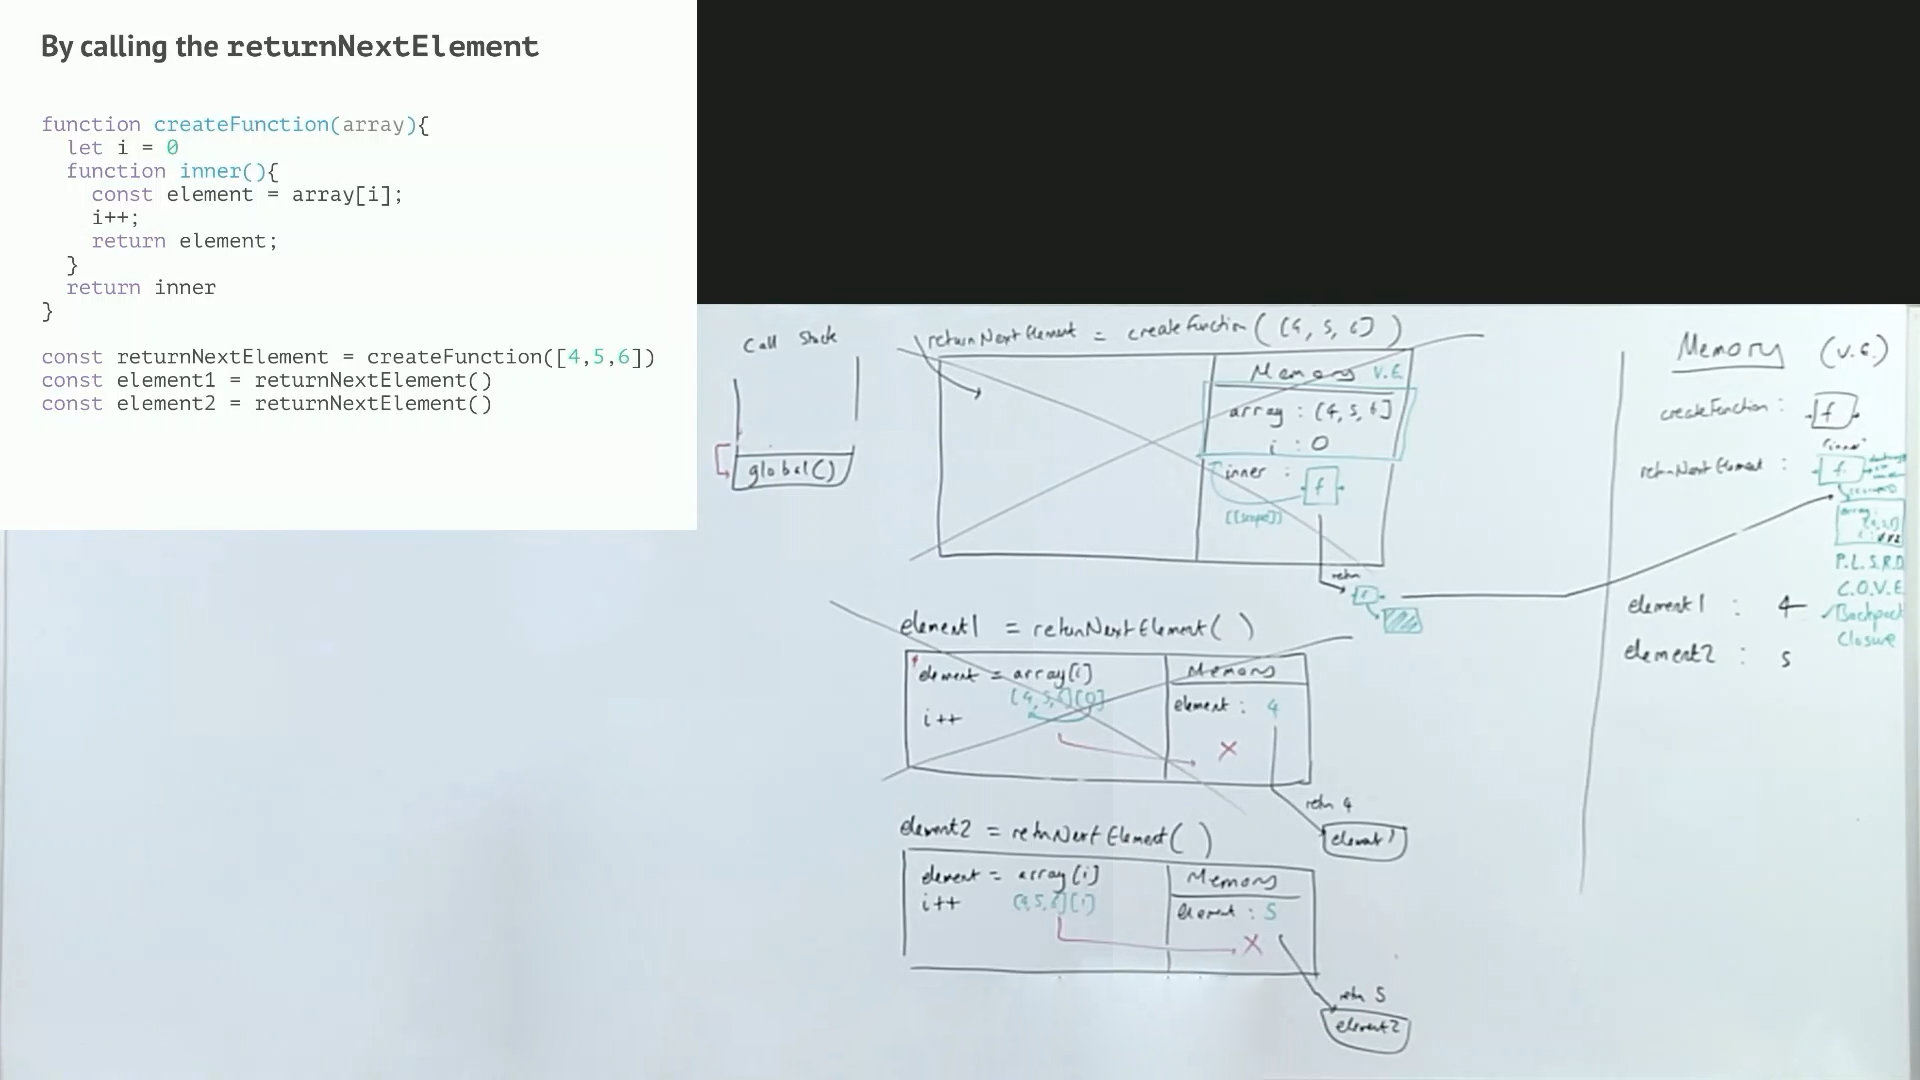 By calling the returnNextElement
function createFunction(array){
let i = 0
function inner(){
const element = array[i];
i++;
return element;
}
return inner
}
const returnNextElement = createFunction([4,5,6])
const element1 = returnNextElement()
const element2 = returnNextElement()
Call Stack
global()
returnNextElement = createFunction([4, 5, 6])
Memory V.E.
array : [4, 5, 6]
i : 0
inner : f
[[scope]]
element1 = returnNextElement( )
element = array[i]
[4, 5, 6][0]
i++
Memory
element : 4
X
retn 4
element1
element2 = retnNextElement( )
element = array[i]
i++ [4,5,6][1]
Memory
element : 5
X
retn 5
element2
Memory (V.E.)
createFunction : f
"inner"
retnNextElement : f
array:
P.L.S.R.D
C.O.V.E
Backpack
Closure
element1 : 4
element2 : 5